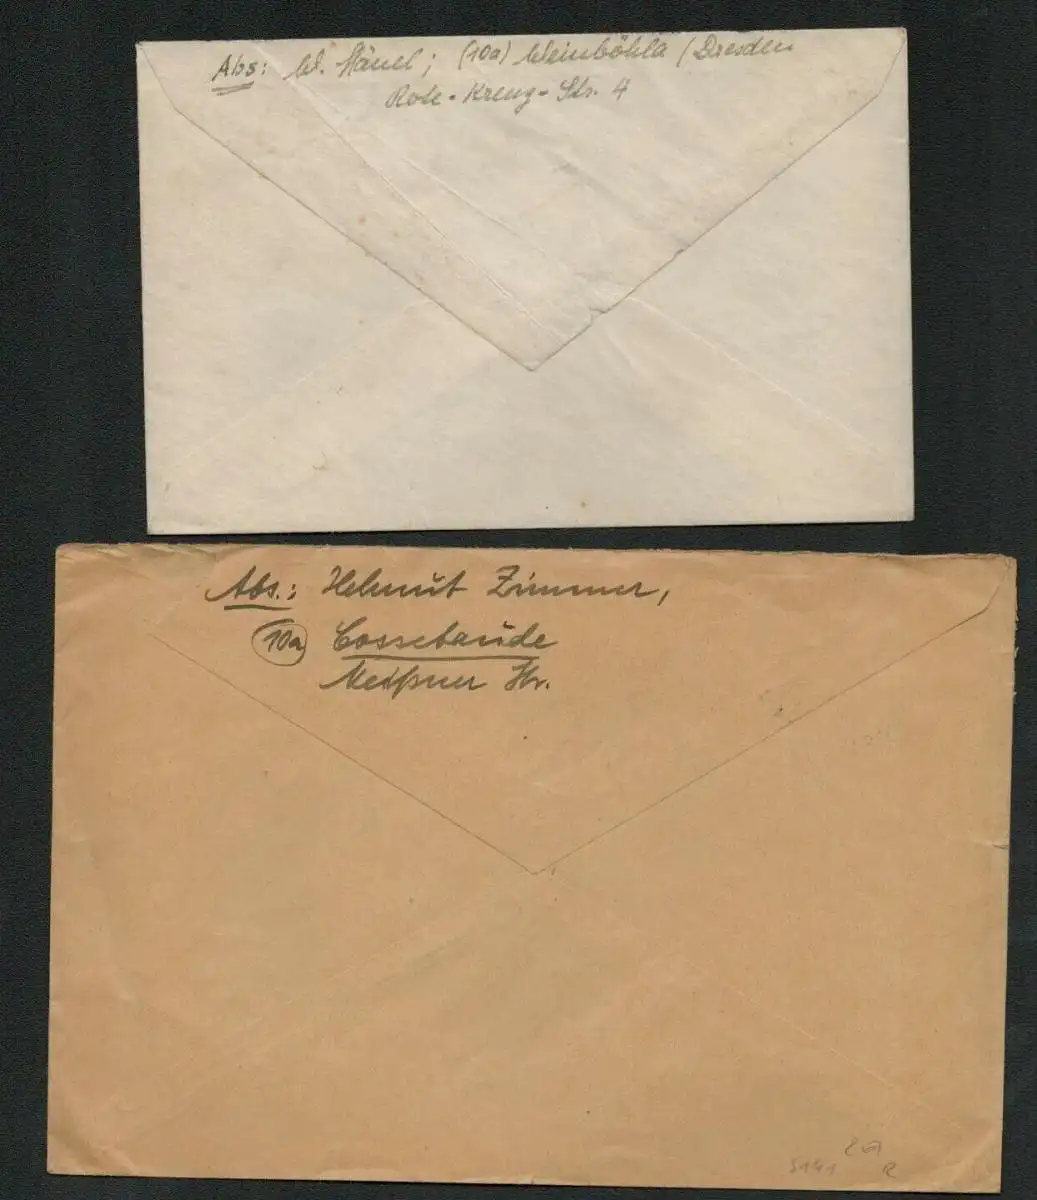 Abs: W. Hänel; (10a) Weinböhla (Dresden
Rote-Kreuz-Str. 4
Abs.: Helmut Zimmer,
10a Cossebaude
Meißner Str.